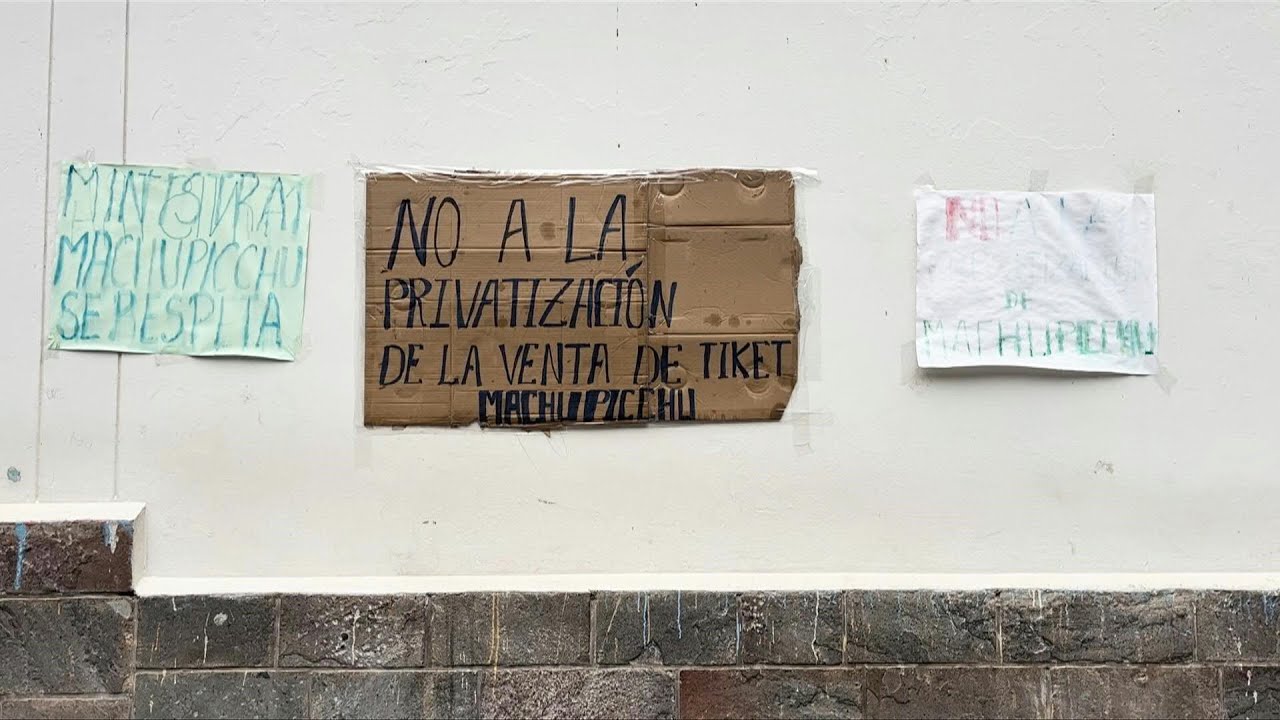 MACHUPICCHU
SE RESPETA
NO A LA
PRIVATIZACIÓN
DE LA VENTA DE TIKET
MACHUPICCHU
NO A LA
DE
MACHUPICCHU